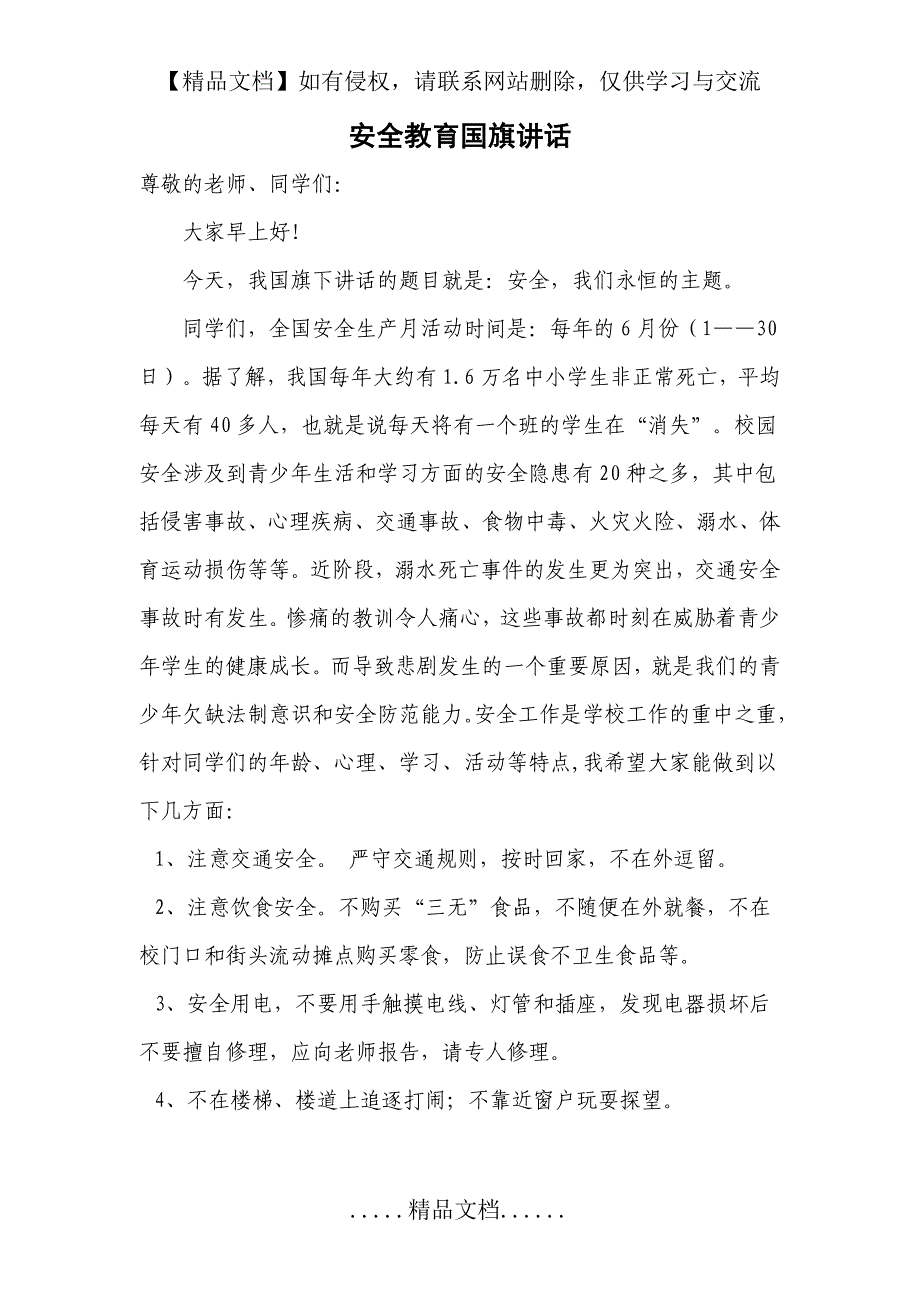 【精品文档】如有侵权，请联系网站删除，仅供学习与交流
安全教育国旗讲话
尊敬的老师、同学们：
大家早上好！
今天，我国旗下讲话的题目就是：安全，我们永恒的主题。
同学们，全国安全生产月活动时间是：每年的6月份（1——30
日）。据了解，我国每年大约有1.6万名中小学生非正常死亡，平均
每天有40多人，也就是说每天将有一个班的学生在“消失”。校园
安全涉及到青少年生活和学习方面的安全隐患有20种之多，其中包
括侵害事故、心理疾病、交通事故、食物中毒、火灾火险、溺水、体
育运动损伤等等。近阶段，溺水死亡事件的发生更为突出，交通安全
事故时有发生。惨痛的教训令人痛心，这些事故都时刻在威胁着青少
年学生的健康成长。而导致悲剧发生的一个重要原因，就是我们的青
少年欠缺法制意识和安全防范能力。安全工作是学校工作的重中之重，
针对同学们的年龄、心理、学习、活动等特点,我希望大家能做到以
下几方面：
1、注意交通安全。 严守交通规则，按时回家，不在外逗留。
2、注意饮食安全。不购买“三无”食品，不随便在外就餐，不在
校门口和街头流动摊点购买零食，防止误食不卫生食品等。
3、安全用电，不要用手触摸电线、灯管和插座，发现电器损坏后
不要擅自修理，应向老师报告，请专人修理。
4、不在楼梯、楼道上追逐打闹；不靠近窗户玩耍探望。
.....精品文档......